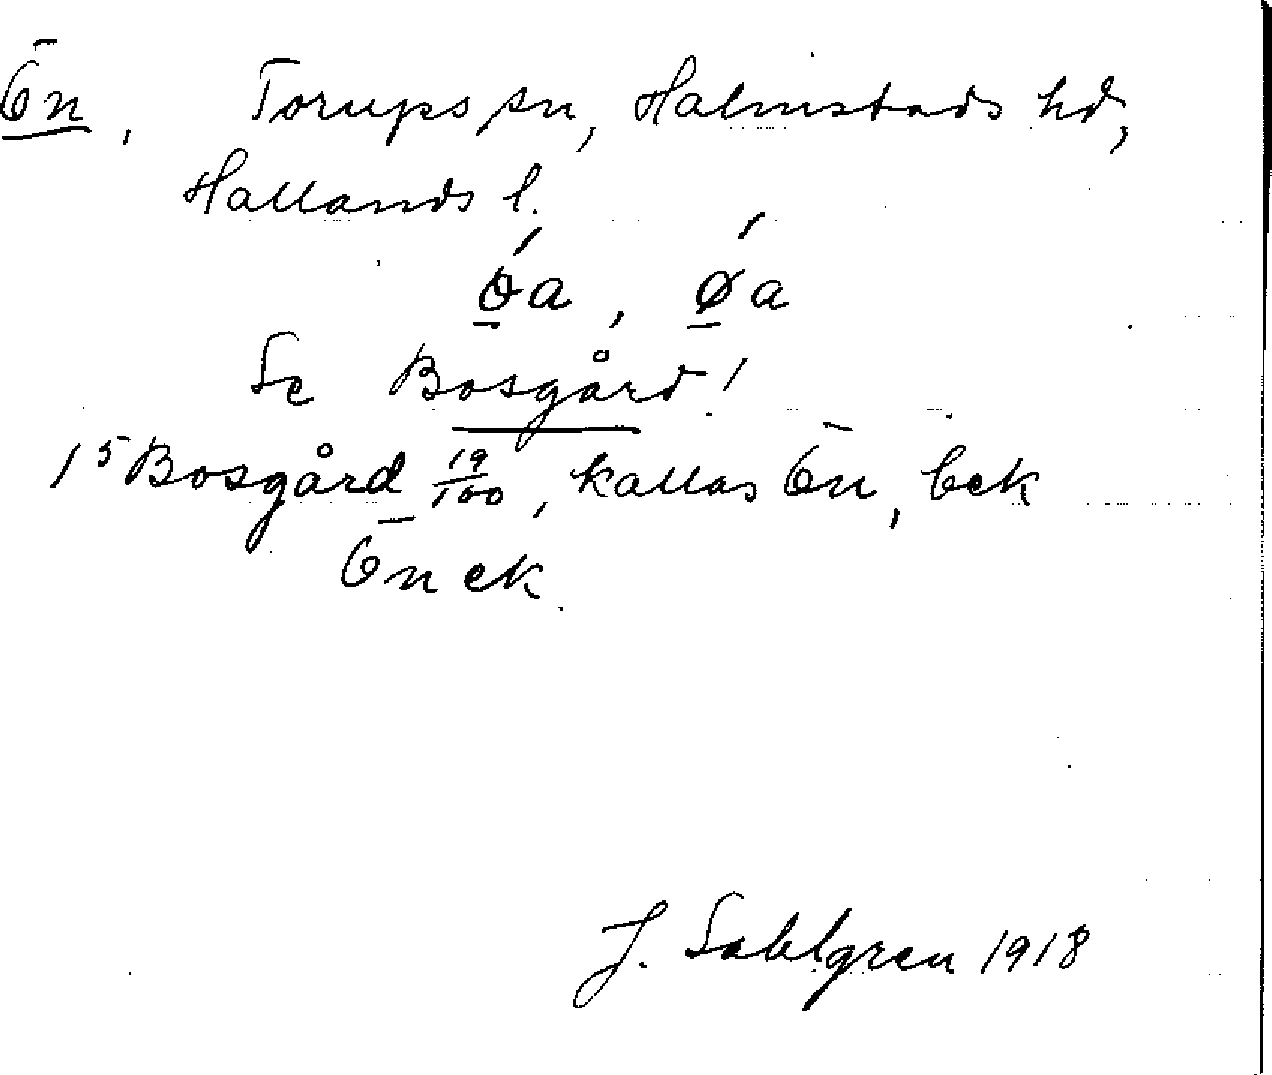 Ön, Torups sn, Halmstads hd,
Hallands l.
öa, øa
Se Bosgård!
1⁵ Bosgård 19/100, kallas Ön, bek
Önek.
J. Sahlgren 1918